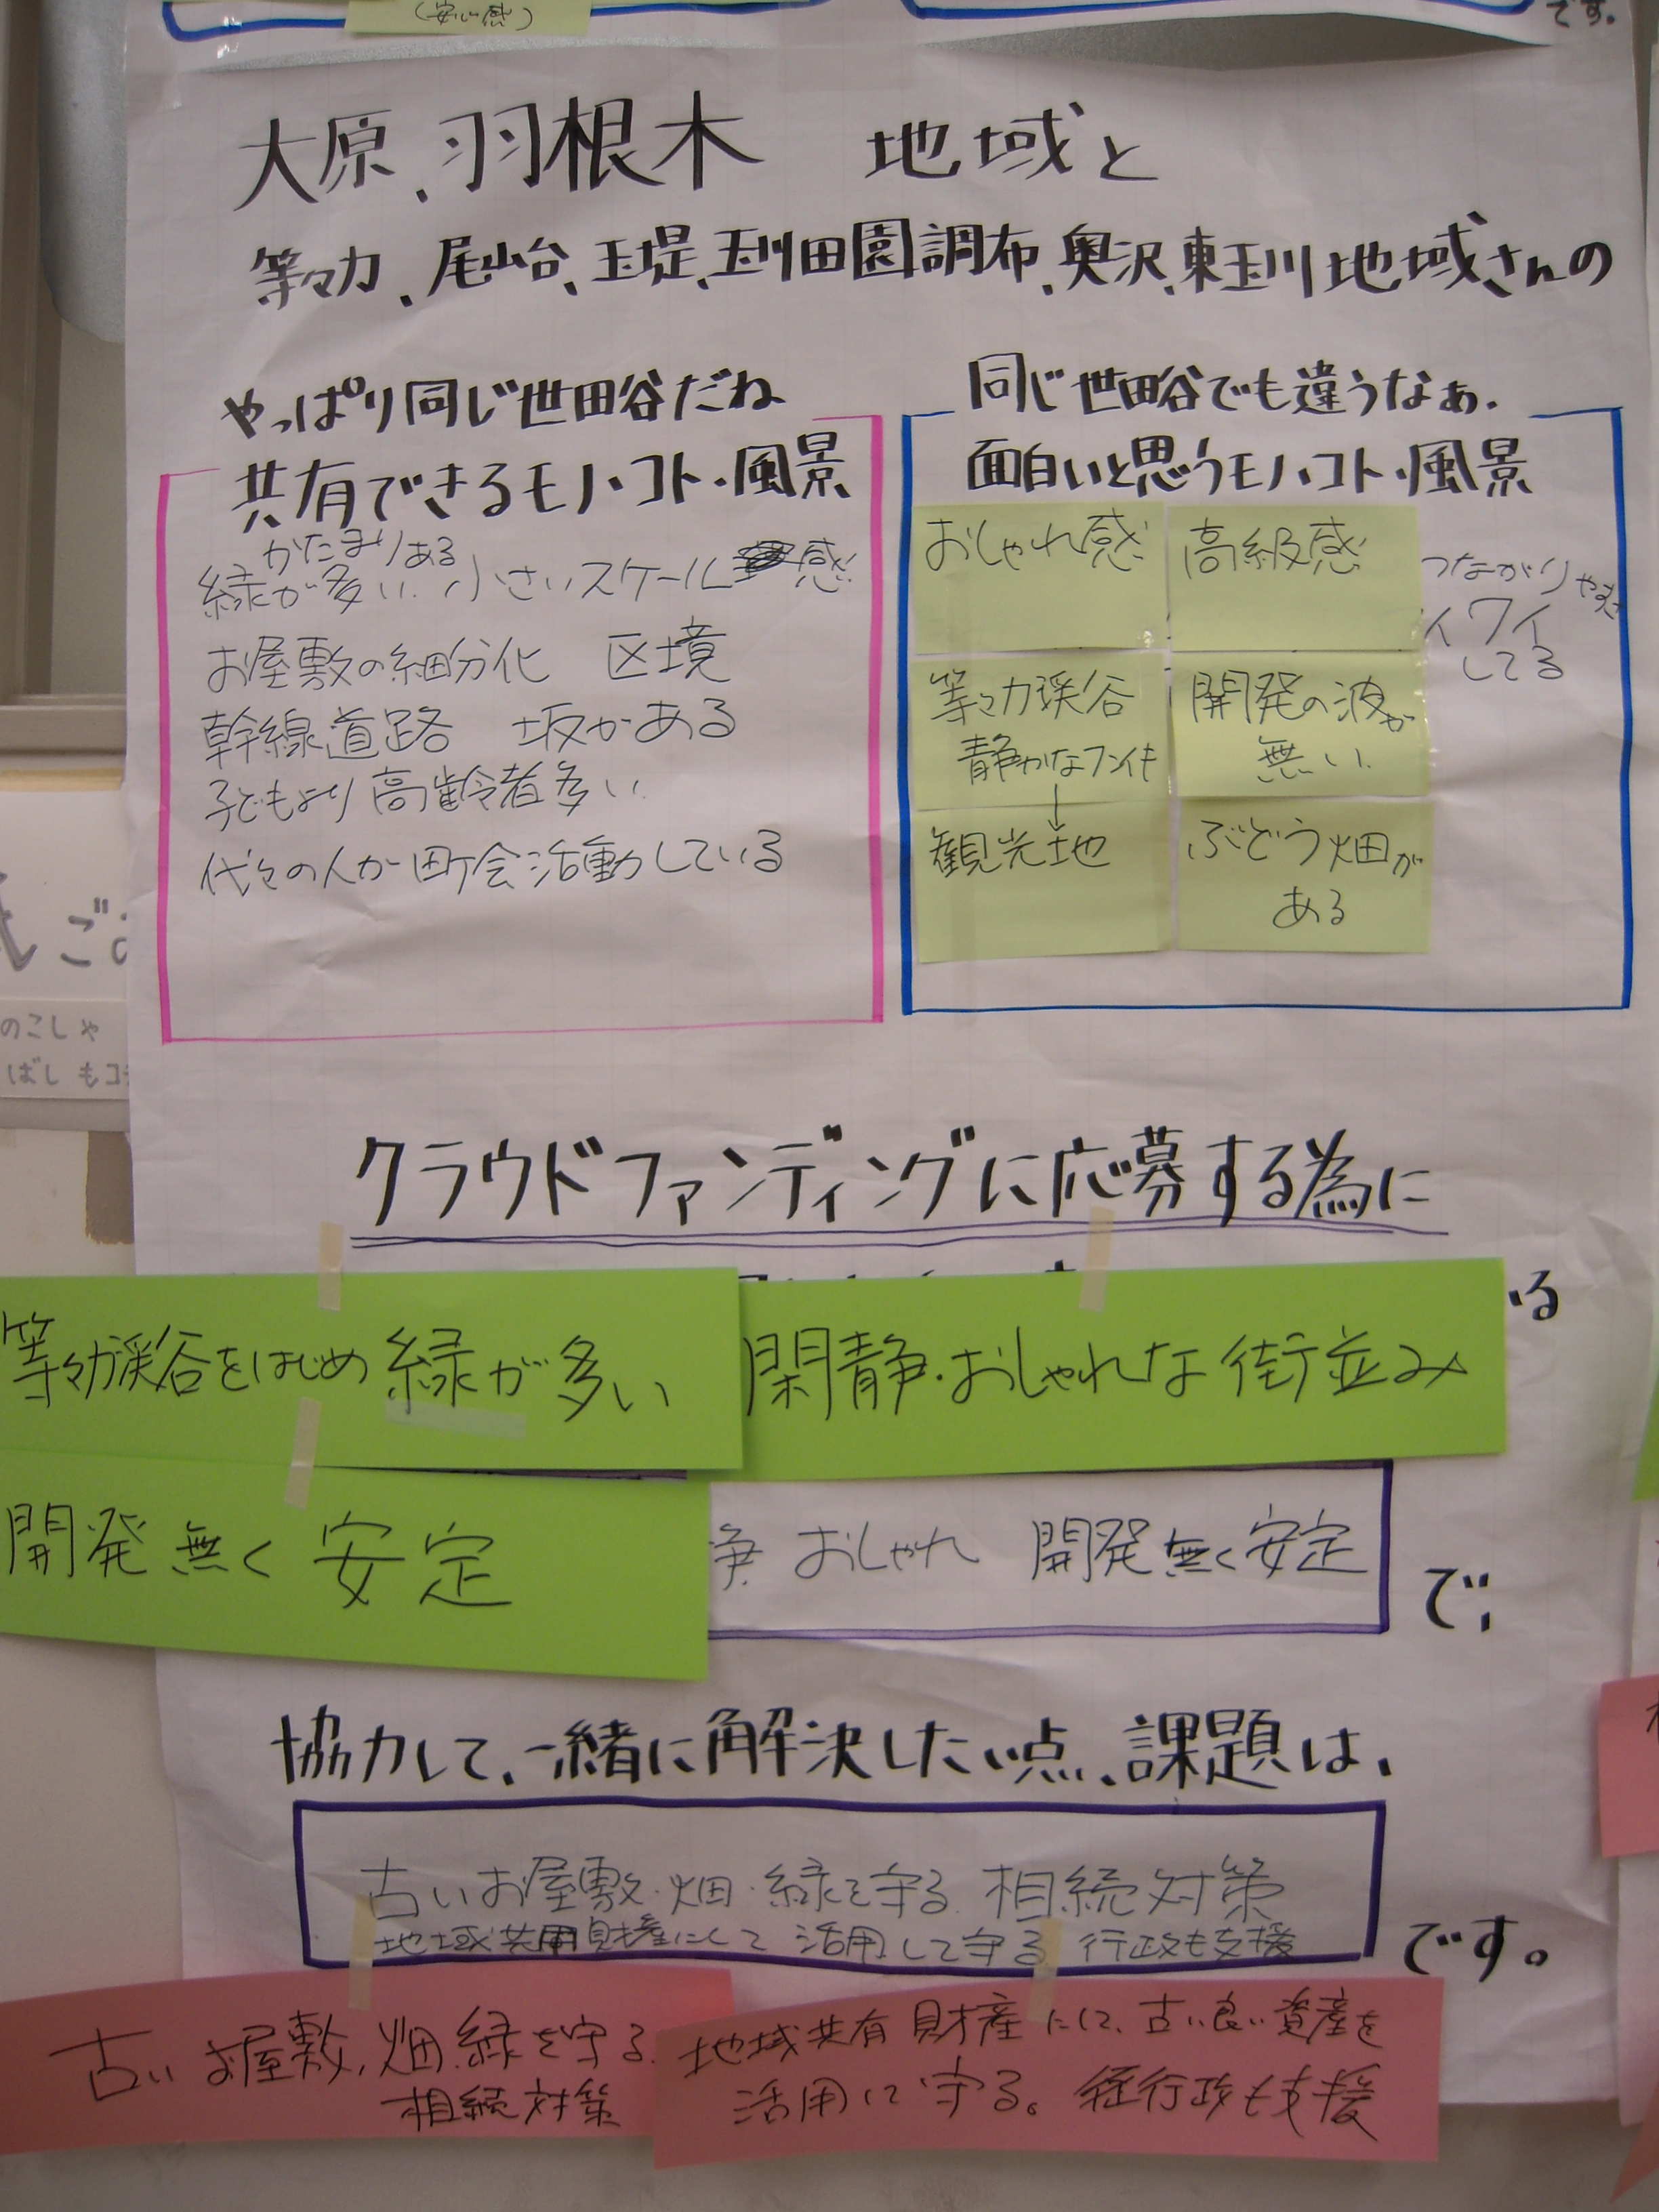 (安心感)
です。
大原、羽根木 地域と
等々力、尾山台、玉堤、玉川田園調布、奥沢、東玉川地域さんの
やっぱり同じ世田谷だね
共有できるモノ・コト・風景
かたまりある
緑が多い 小さいスケール感
お屋敷の細分化 区境
幹線道路 坂がある
子どもより高齢者多い
代々の人が町会活動している
同じ世田谷でも違うなぁ。
面白いと思うモノ・コト・風景
おしゃれ感
高級感
つながりやすさ
イワイ
してる
等々力渓谷
静かなフンイキ
↓
観光地
開発の波が
無い
ぶどう畑が
ある
クラウドファンディングに応募する為に
いる
等々力渓谷をはじめ緑が多い
閑静・おしゃれな街並み
開発無く安定
静 おしゃれ 開発無く安定
で、
協力して、一緒に解決したい点、課題は、
古いお屋敷・畑・緑を守る 相続対策
地域共有財産にして 活用して守る 行政も支援
です。
古いお屋敷、畑、緑を守る
相続対策
地域共有財産にして、古い良い資産を
活用して守る。 行政も支援
ごみ
のこしゃ
ばし もコ